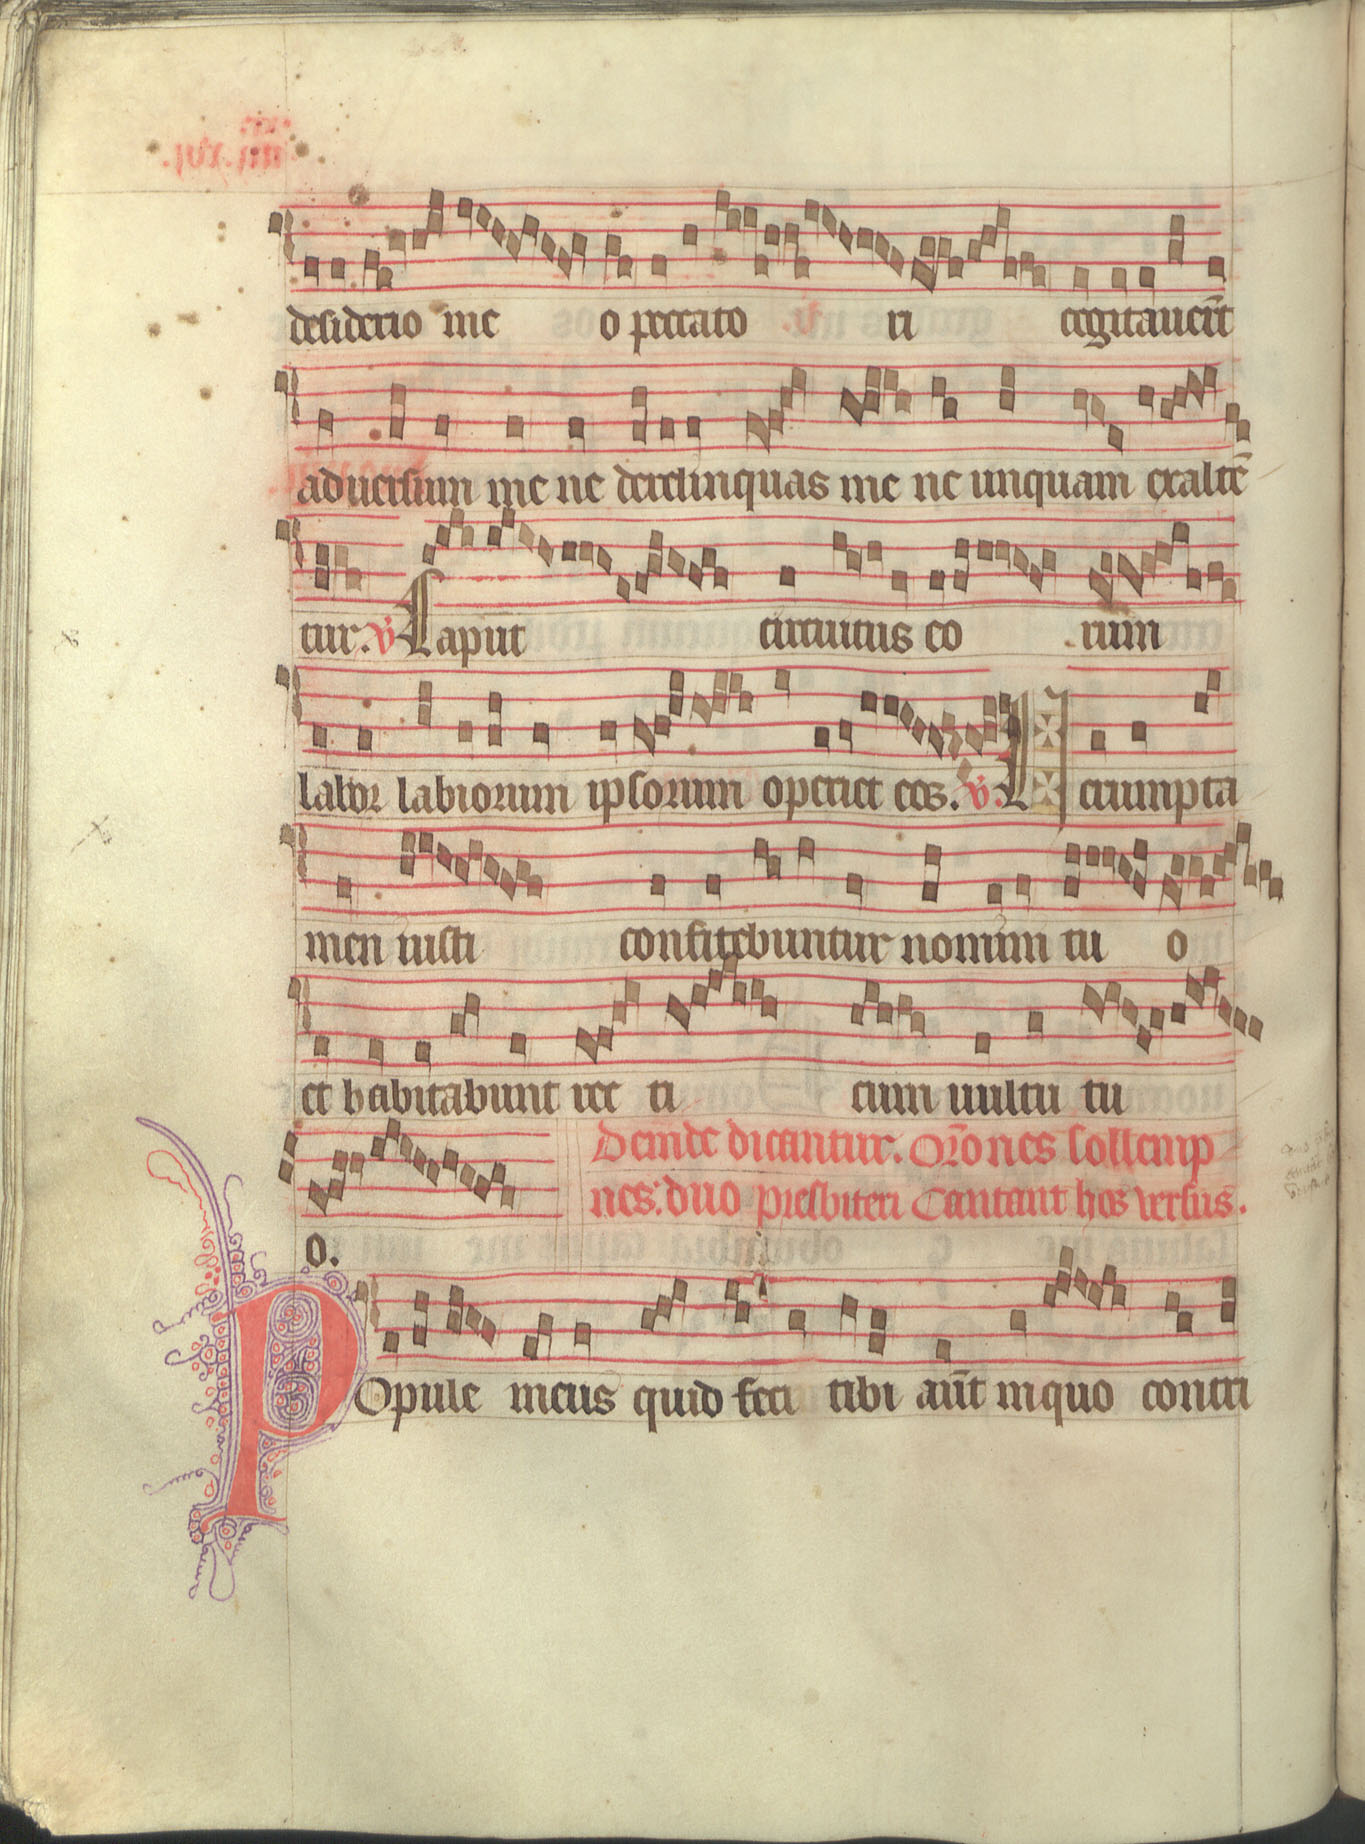 desiderio me o peccato ri cogitauer̄t
aduersum me ne derelinquas me ne unquam exaltē
tur. v̄ Caput circuitus eo rum
labor labiorum ipsorum operiet eos. v̄. Uerumpta
men iusti confitebuntur nomini tu o
et habitabunt rec ti cum uultu tu
Deinde dicantur. Or̄ones sollemp
nes: duo presbiteri Cantant hos versus.
o.
POpule meus quid feci tibi aut̄ in quo contri